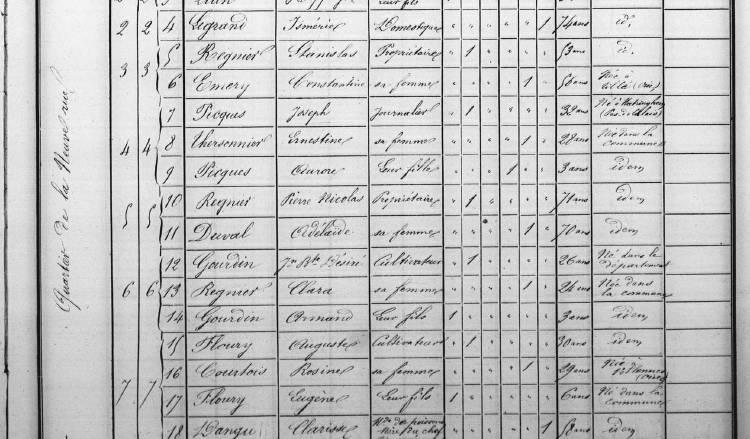 Quartier de la Neuve rue
2 2 4 Legrand Ismérie Domestique " " " " " 1 74 ans id.
3 3 5 Regnier Stanislas Propriétaire " 1 " " " " 53 ans id.
6 Emery Constantine sa femme " " " " 1 " 56 ans Née à
7 Picques Joseph Journalier " 1 " " " " 32 ans Né à
(Pas de Calais)
4 4 8 Ernestine sa femme " " " " 1 " 28 ans Née dans la
commune
9 Picques Aurore Leur fille " " " 1 " " 3 ans idem
5 5 10 Regnier Pierre Nicolas Propriétaire " 1 " " " " 71 ans idem
11 Duval Adélaïde sa femme " " " " 1 " 70 ans idem
12 Gourdin Jn Bte Désiré Cultivateur " 1 " " " " 26 ans Né dans le
département
6 6 13 Regnier Clara sa femme " " " " 1 " 24 ans Née dans
la commune
14 Gourdin Armand Leur fils 1 " " " " " 3 ans idem
15 Floury Auguste Cultivateur " 1 " " " " 30 ans idem
16 Courtois Rosine sa femme " " " " 1 " 29 ans Née à
(Oise)
7 7 17 Floury Eugène Leur fils 1 " " " " " 6 ans Né dans la
commune
18 Dangu Clarisse " " " " " 1 58 ans idem